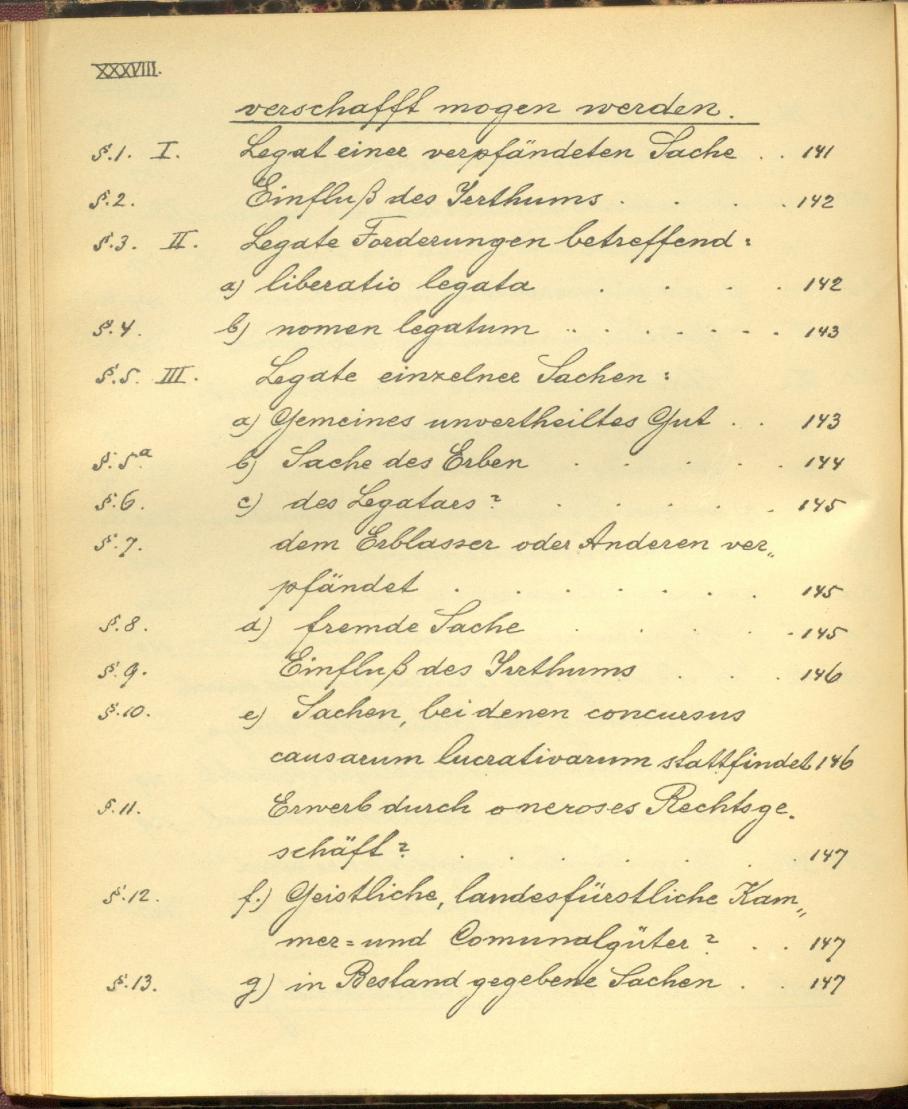 XXXVIII.
verschafft mogen werden.
§.1. I. Legat einer verpfändeten Sache . . 141
§.2. Einfluß des Irrthums . . . . 142
§.3. II. Legate Forderungen betreffend:
a) liberatio legata . . . . 142
§.4. b) nomen legatum . . . . . . . 143
§.5. III. Legate einzelner Sachen:
a) Gemeines unvertheiltes Gut . . 143
§.5a b) Sache des Erben . . . . . 144
§.6. c) des Legatars? . . . . . 145
§.7. dem Erblasser oder Anderen ver„
pfändet . . . . . . . 145
§.8. d) fremde Sache . . . . 145
§.9. Einfluß des Irrthums . . . 146
§.10. e) Sachen, bei denen concursus
causarum lucrativarum stattfindet 146
§.11. Erwerb durch oneroses Rechtsge.
schäft? . . . . . . . 147
§.12. f.) Geistliche, landesfürstliche Kam„
mer=und Comunalgüter? . . 147
§.13. g) in Bestand gegebene Sachen . . 147